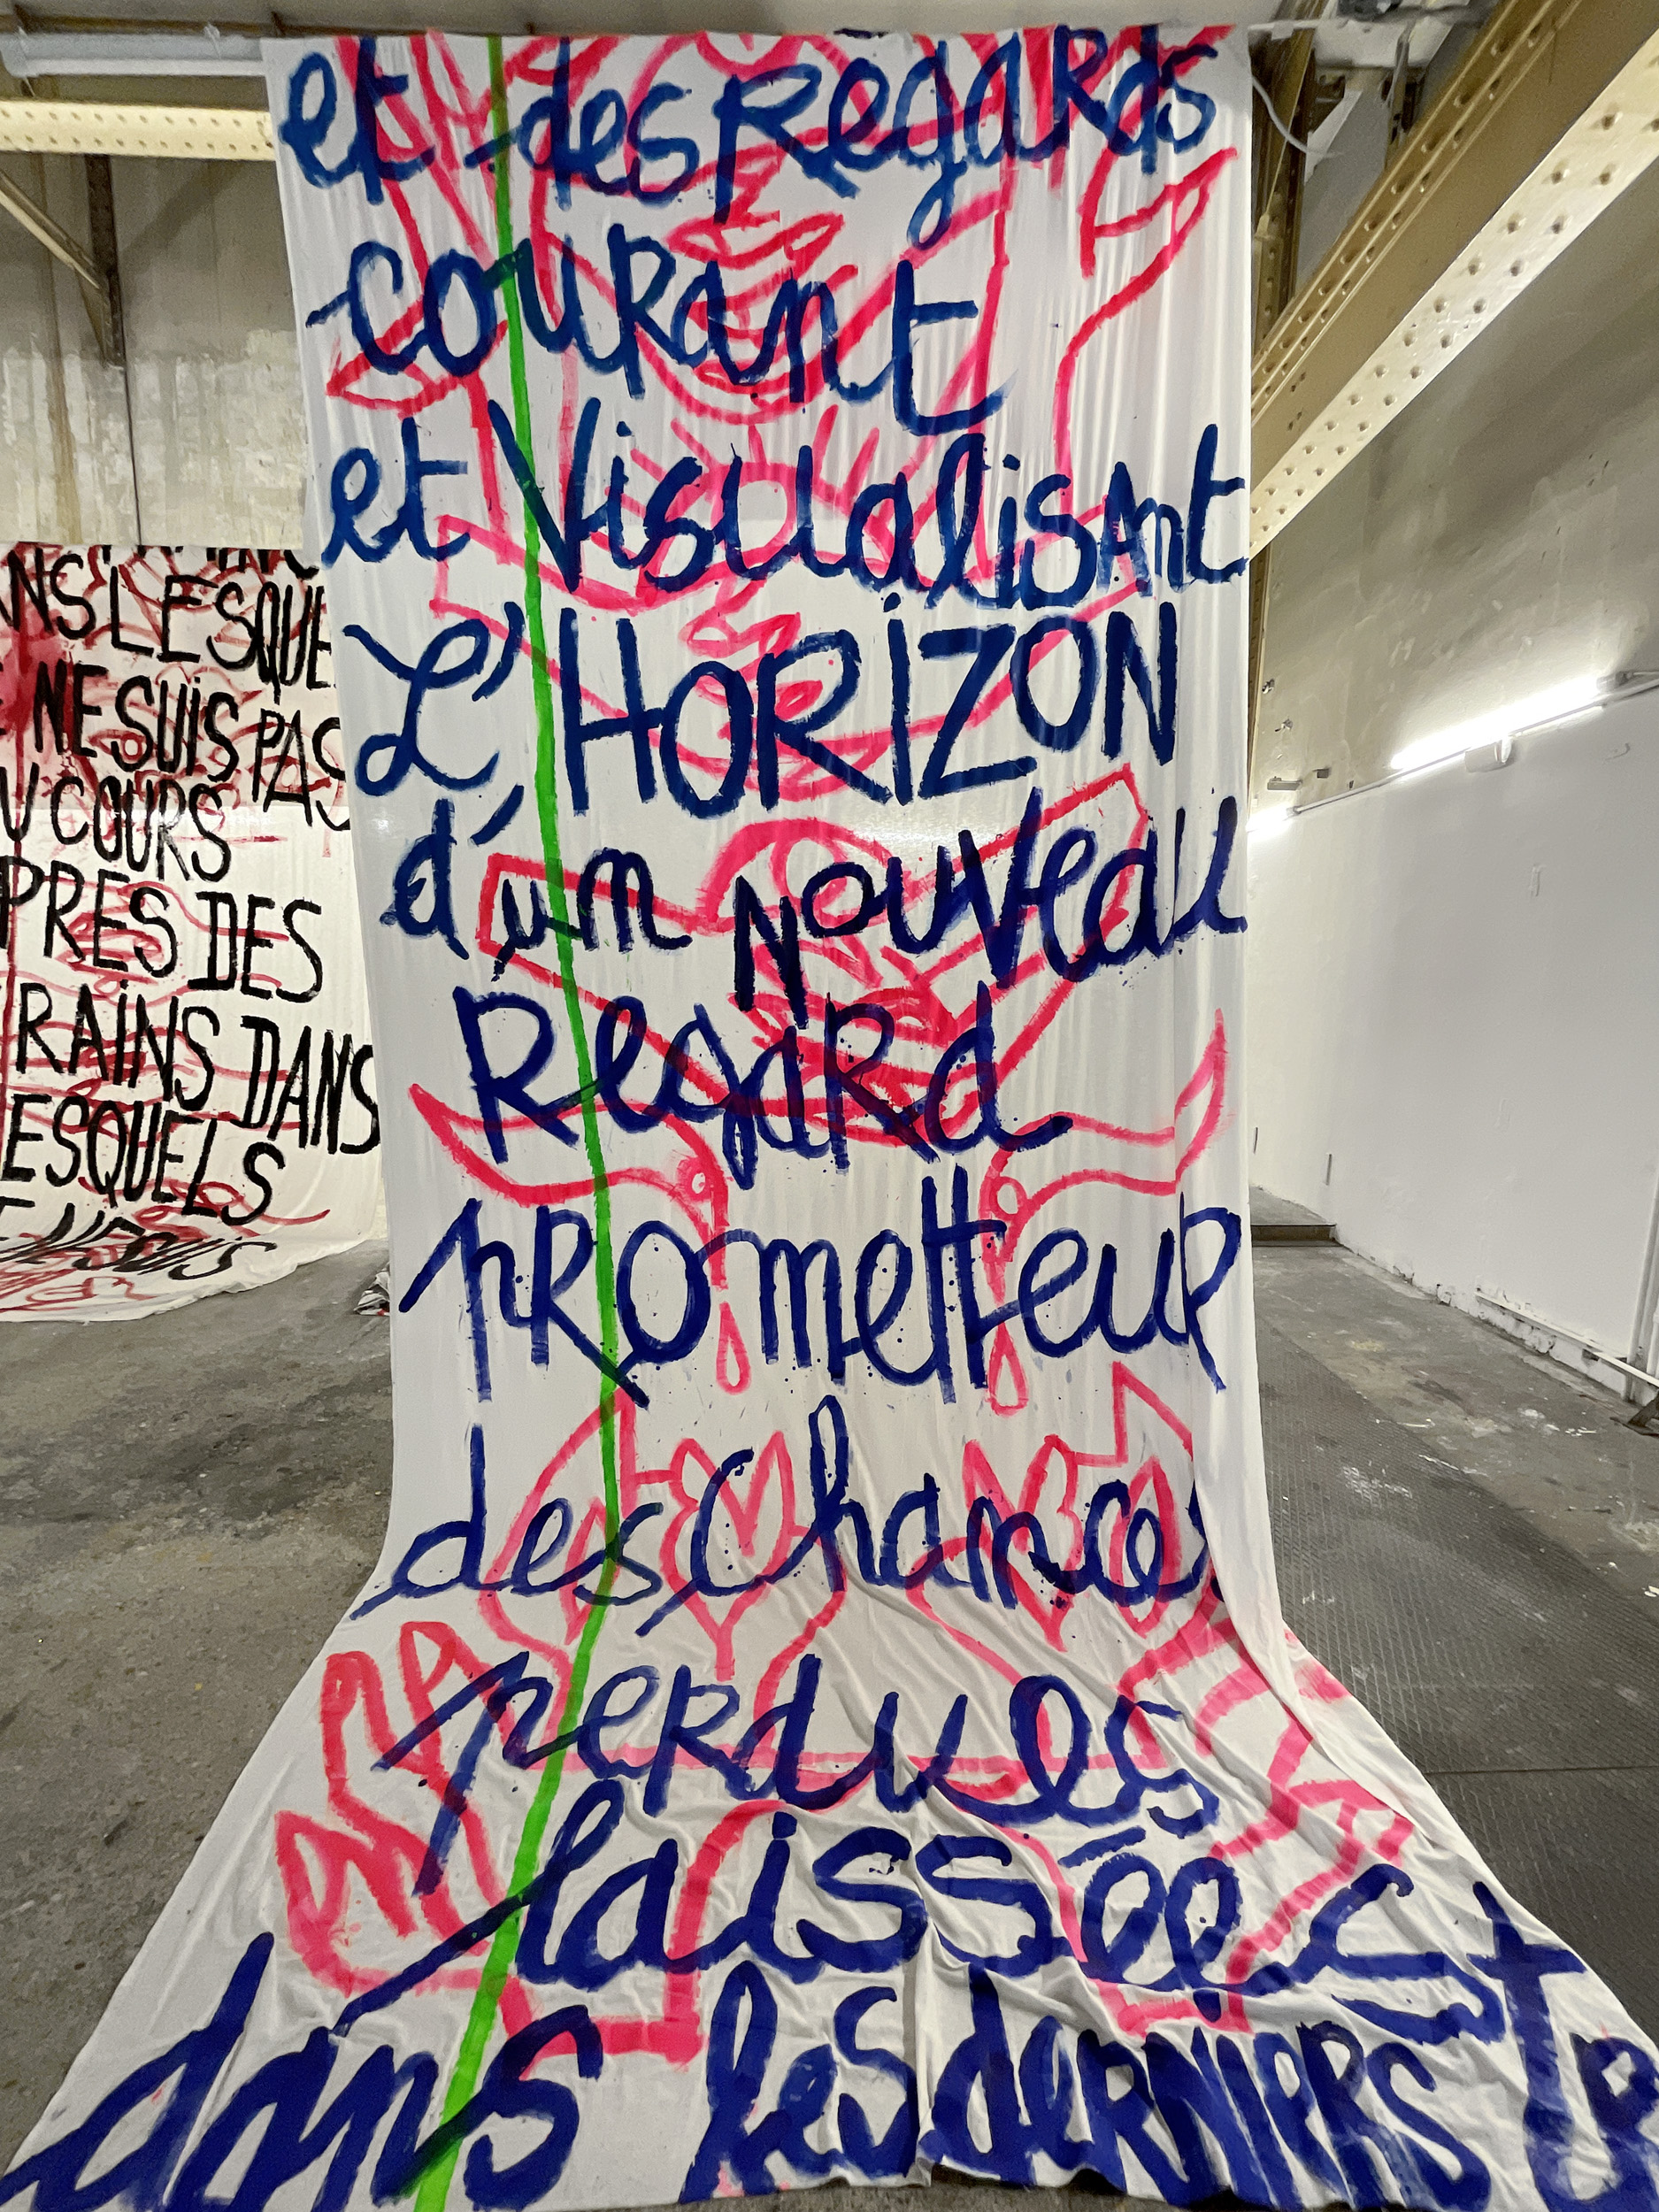 et des Regards
couRant
et VisualisAnt
L'HORiZON
d'un NouVeau
RegaRd
pRometteur
des Chances
perdues
laissées
dans les derniers
NS LESQUE
NE SUiS PAS
U COURS
PRES DES
RAiNS DANS
ESQUELS
NE SUIS